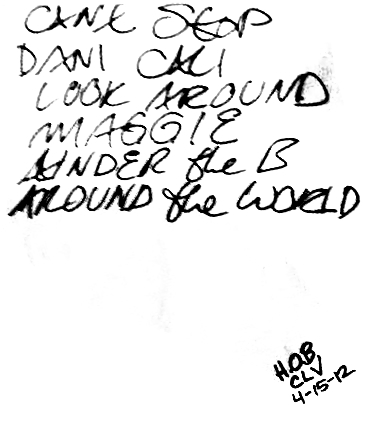 CAN'T STOP
DANI CALI
LOOK AROUND
MAGGIE
UNDER the B
AROUND the WORLD
H.O.B
CLV
4-15-12